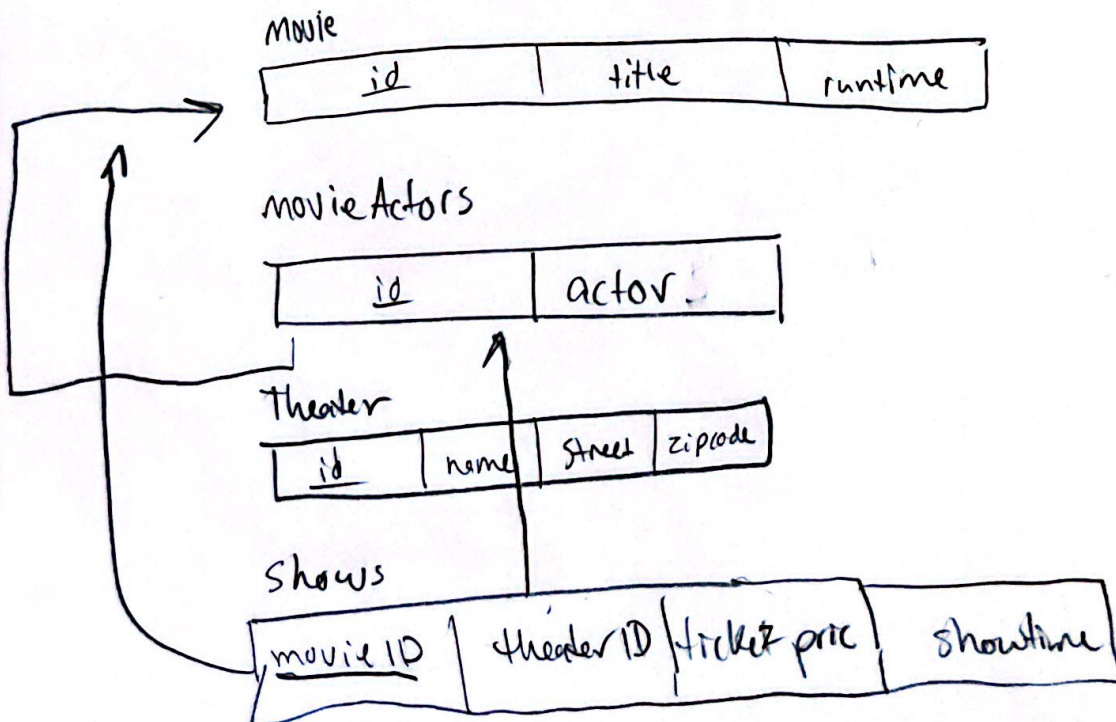 movie
id title runtime
movieActors
id actor
Theater
id name street zipcode
Shows
movieID theaterID ticket pric showtime